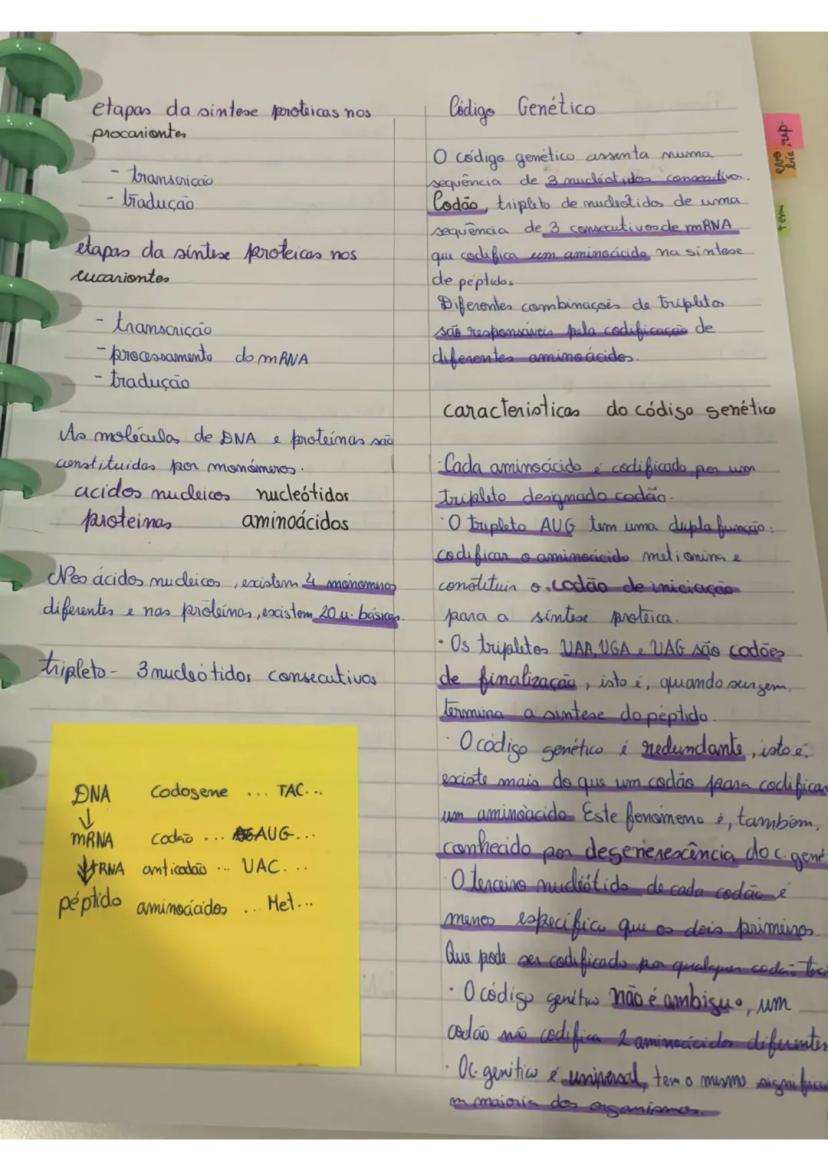 etapas da síntese proteicas nos
procariontes
- transcrição
- tradução
etapas da síntese proteicas nos
eucariontes
- transcrição
- processamento do mRNA
- tradução
As moléculas de DNA e proteínas são
constituidas por monómeros.
acidos nucleicos nucleótidos
proteinas aminoácidos
Nos ácidos nucleicos, existem 4 monómeros
diferentes e nas proteínas, existem 20 u. básicas.
tripleto - 3 nucleótidos consecutivos
DNA Codogene ... TAC...
mRNA codão ... AUG...
tRNA anticodão ... UAC...
péptido aminoácidos ... Met...
Código Genético
O código genético assenta numa
sequência de 3 nucleótidos consecutivos.
Codão, tripleto de nucleótidos de uma
sequência de 3 consecutivos de mRNA
que codifica um aminoácido na síntese
de péptidos.
Diferentes combinações de tripletos
são responsáveis pela codificação de
diferentes aminoácidos.
caracteristicas do código genético
· Cada aminoácido é codificado por um
tripleto designado codão.
· O tripleto AUG tem uma dupla função:
codificar o aminoácido metionina e
constituir o codão de iniciação
para a síntese proteica.
· Os tripletos UAA, UGA e UAG são codões
de finalização, isto é, quando surgem,
termina a síntese do péptido.
· O código genético é redundante, isto é,
existe mais do que um codão para codificar
um aminoácido. Este fenómeno é, também,
conhecido por degenerescência do c. gené
· O terceiro nucleótido de cada codão é
menos específico que os dois primeiros.
Que pode ser codificado por qualquer codão
· O código genético não é ambíguo, um
codão não codifica 2 aminoácidos diferentes
· O c. genético é universal, tem o mesmo significa
na maioria dos organismos.